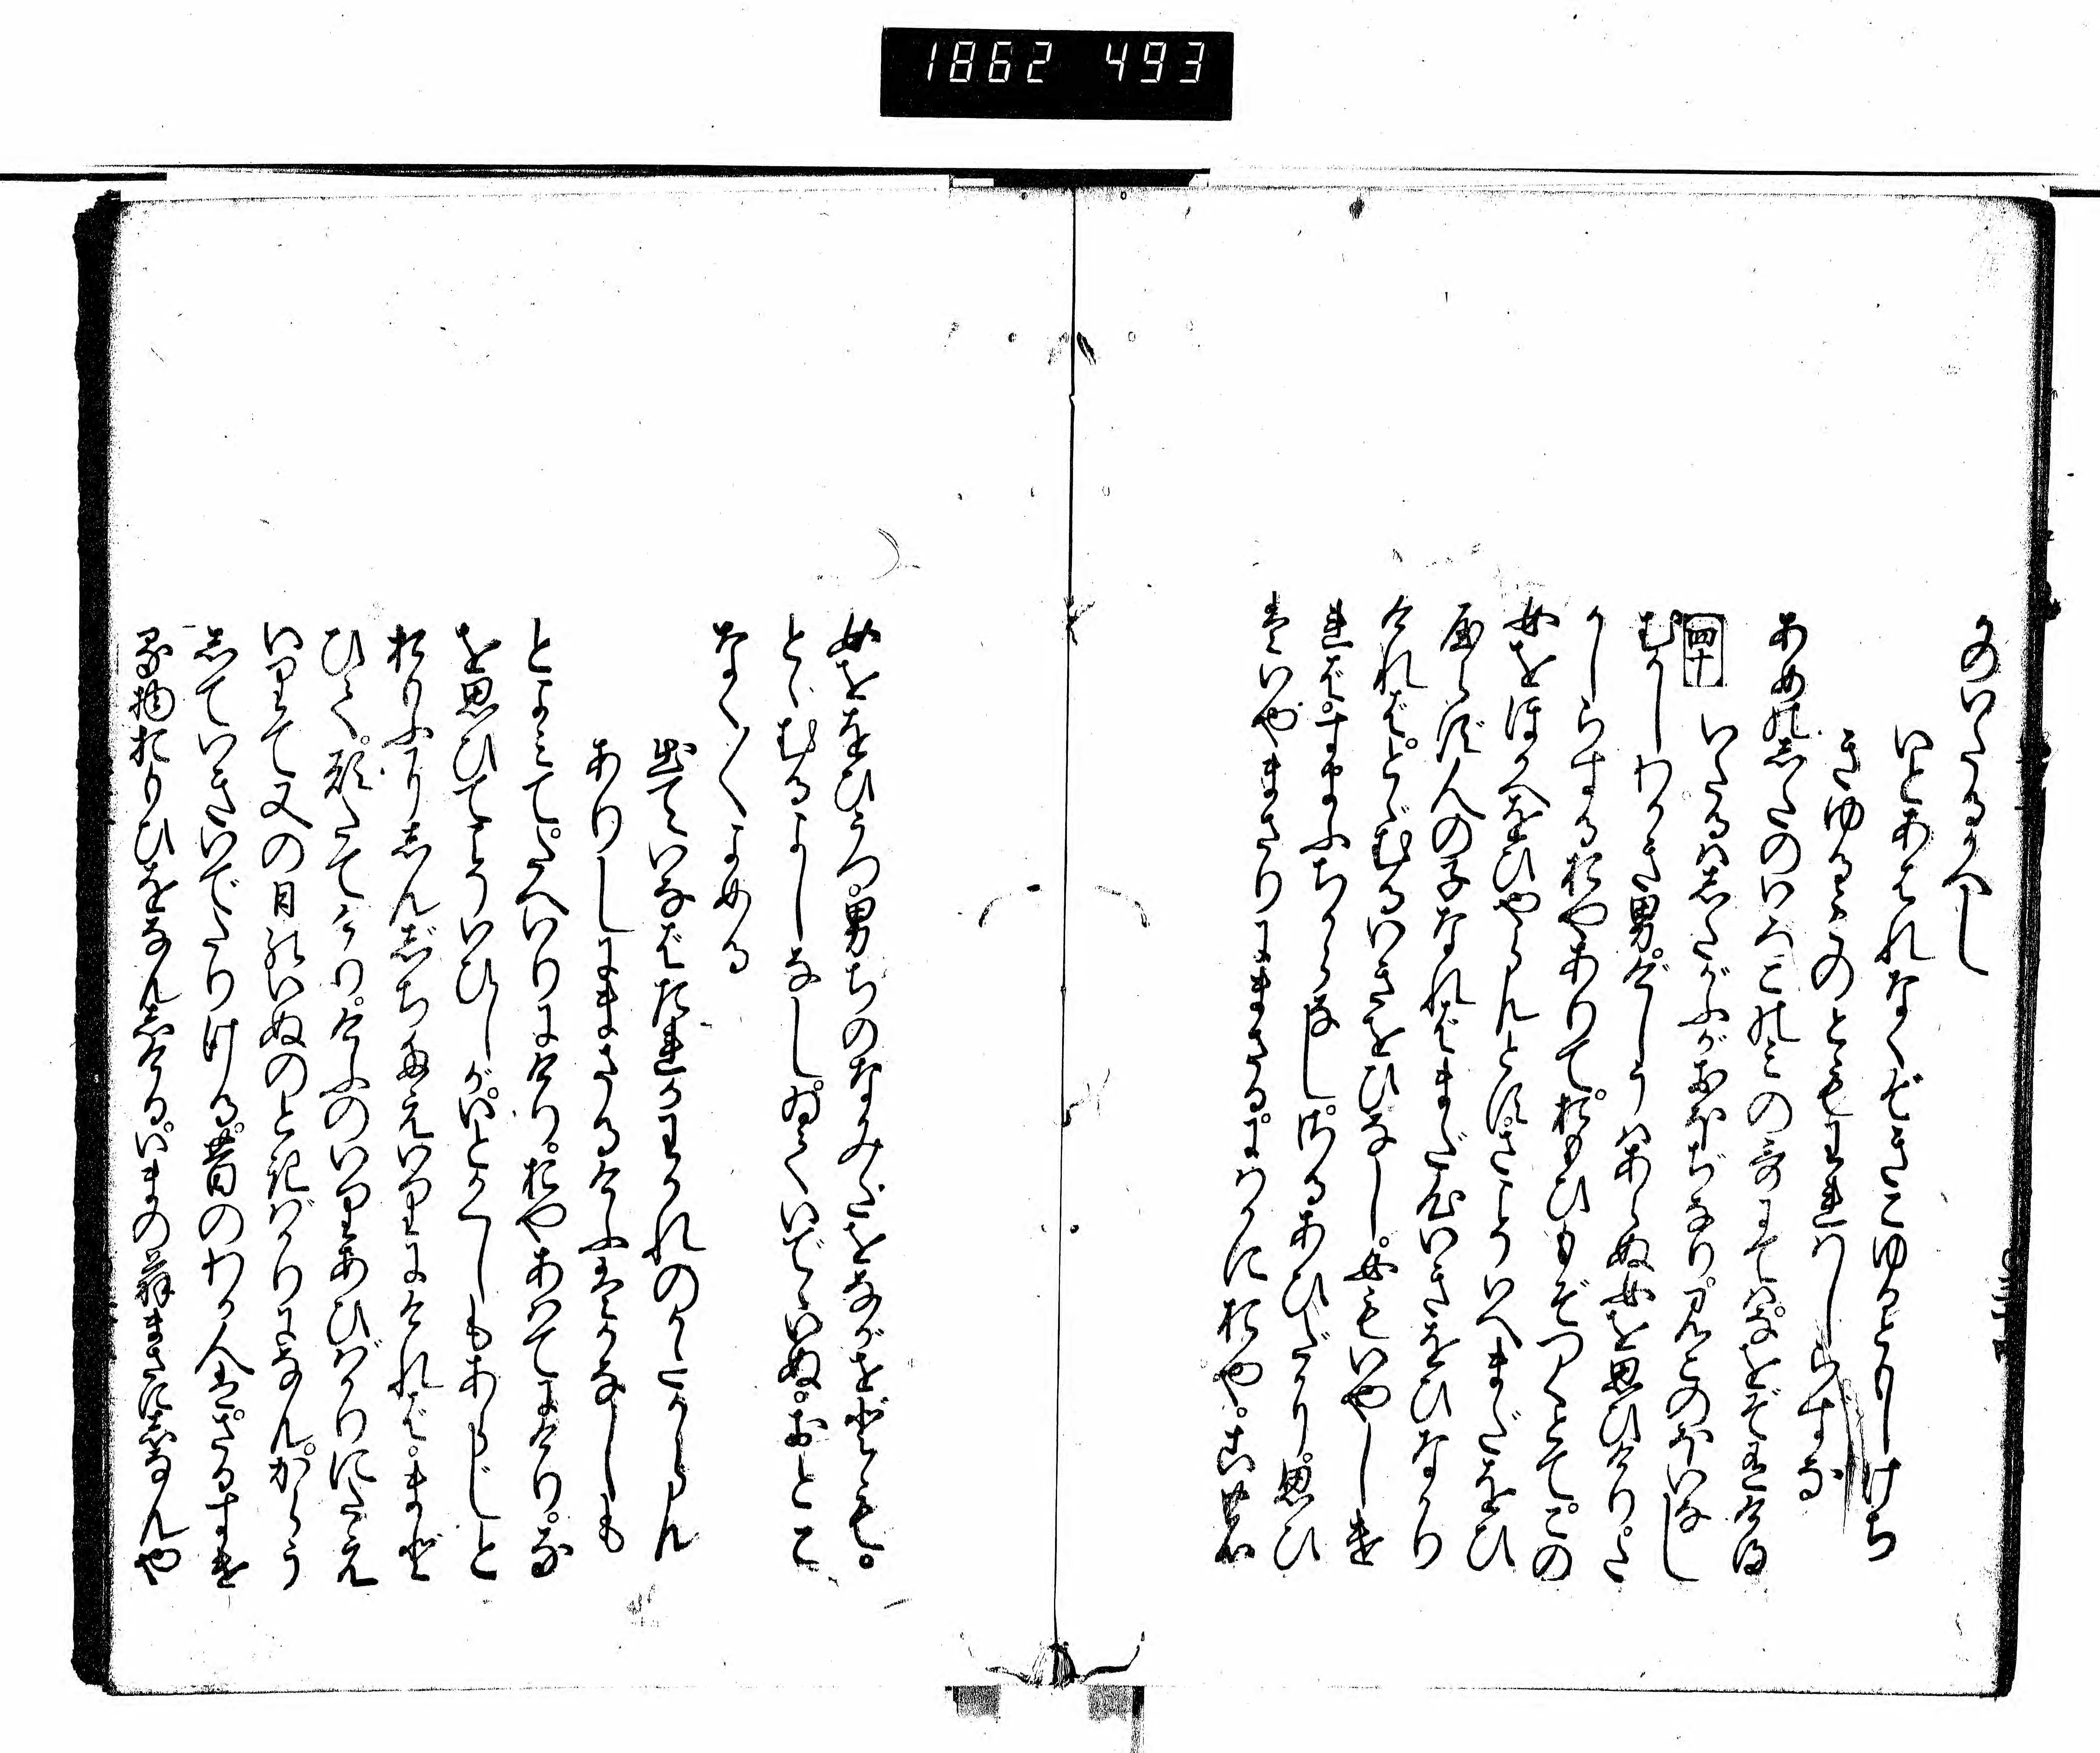 1862 493
かのいたるかへし
いとあはれなくぞきこゆるともしけち
きゆるものとも我はしらずな
あめのしたのいろこのみの哥にてはなをぞ有ける
四十
いたるはしたがふがおほぢなり。みこのほいなし
むかしわかき男。けしうはあらぬ女を思ひけり。さ
かしらするおやありて。おもひもぞつくとて。この
女をほかへをひやらんとす。さこそいへまだをひ
やらず。人の子なればまだ心いきをひなかり
ければ。とゞむるいきをひなし。女もいやしけ
れば。すまふちからなし。さるあひだに。思ひ
はいやまさりにまさる。にはかにおや。此
女をゝひうつ。男ちのなみだをながせども。
とゞむるよしなし。ゐていでゝいぬ。おとこ
なく〳〵よめる
出ていなばたれか別れのかたからん
ありしにまさるけふはかなしも
とよみて。たへいりにけり。おやあはてにけり。な
を思ひてこそいひしか。いとかくしもあらじと
おもふに。しんじちにたえいりにければ。まど
ひて。願たてけり。けふのいりあひばかりにたえ
いりて又の日のいぬの時ばかりになん。からう
していきいでたりける。昔のわか人は。さるすけ
る物おもひをなんしける。いまの翁まさにしなんや